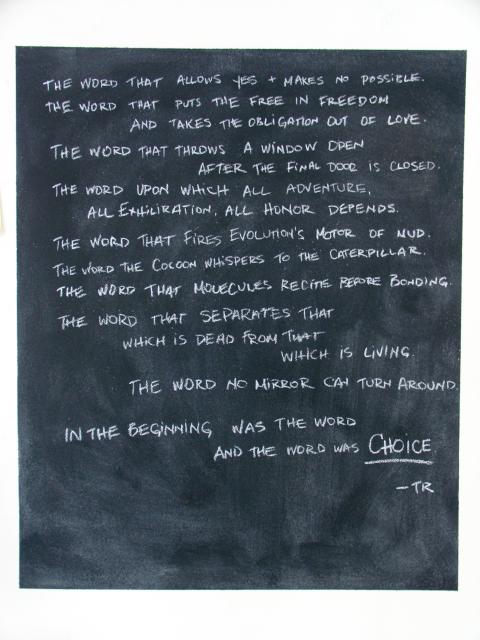 THE WORD THAT ALLOWS YES + MAKES NO POSSIBLE.
THE WORD THAT PUTS THE FREE IN FREEDOM
AND TAKES THE OBLIGATION OUT OF LOVE.
THE WORD THAT THROWS A WINDOW OPEN
AFTER THE FINAL DOOR IS CLOSED.
THE WORD UPON WHICH ALL ADVENTURE,
ALL EXHILIRATION, ALL HONOR DEPENDS.
THE WORD THAT FIRES EVOLUTION'S MOTOR OF MUD.
THE WORD THE COCOON WHISPERS TO THE CATERPILLAR.
THE WORD THAT MOLECULES RECITE BEFORE BONDING.
THE WORD THAT SEPARATES THAT
WHICH IS DEAD FROM THAT
WHICH IS LIVING.
THE WORD NO MIRROR CAN TURN AROUND.
IN THE BEGINNING WAS THE WORD
AND THE WORD WAS CHOICE
—TR